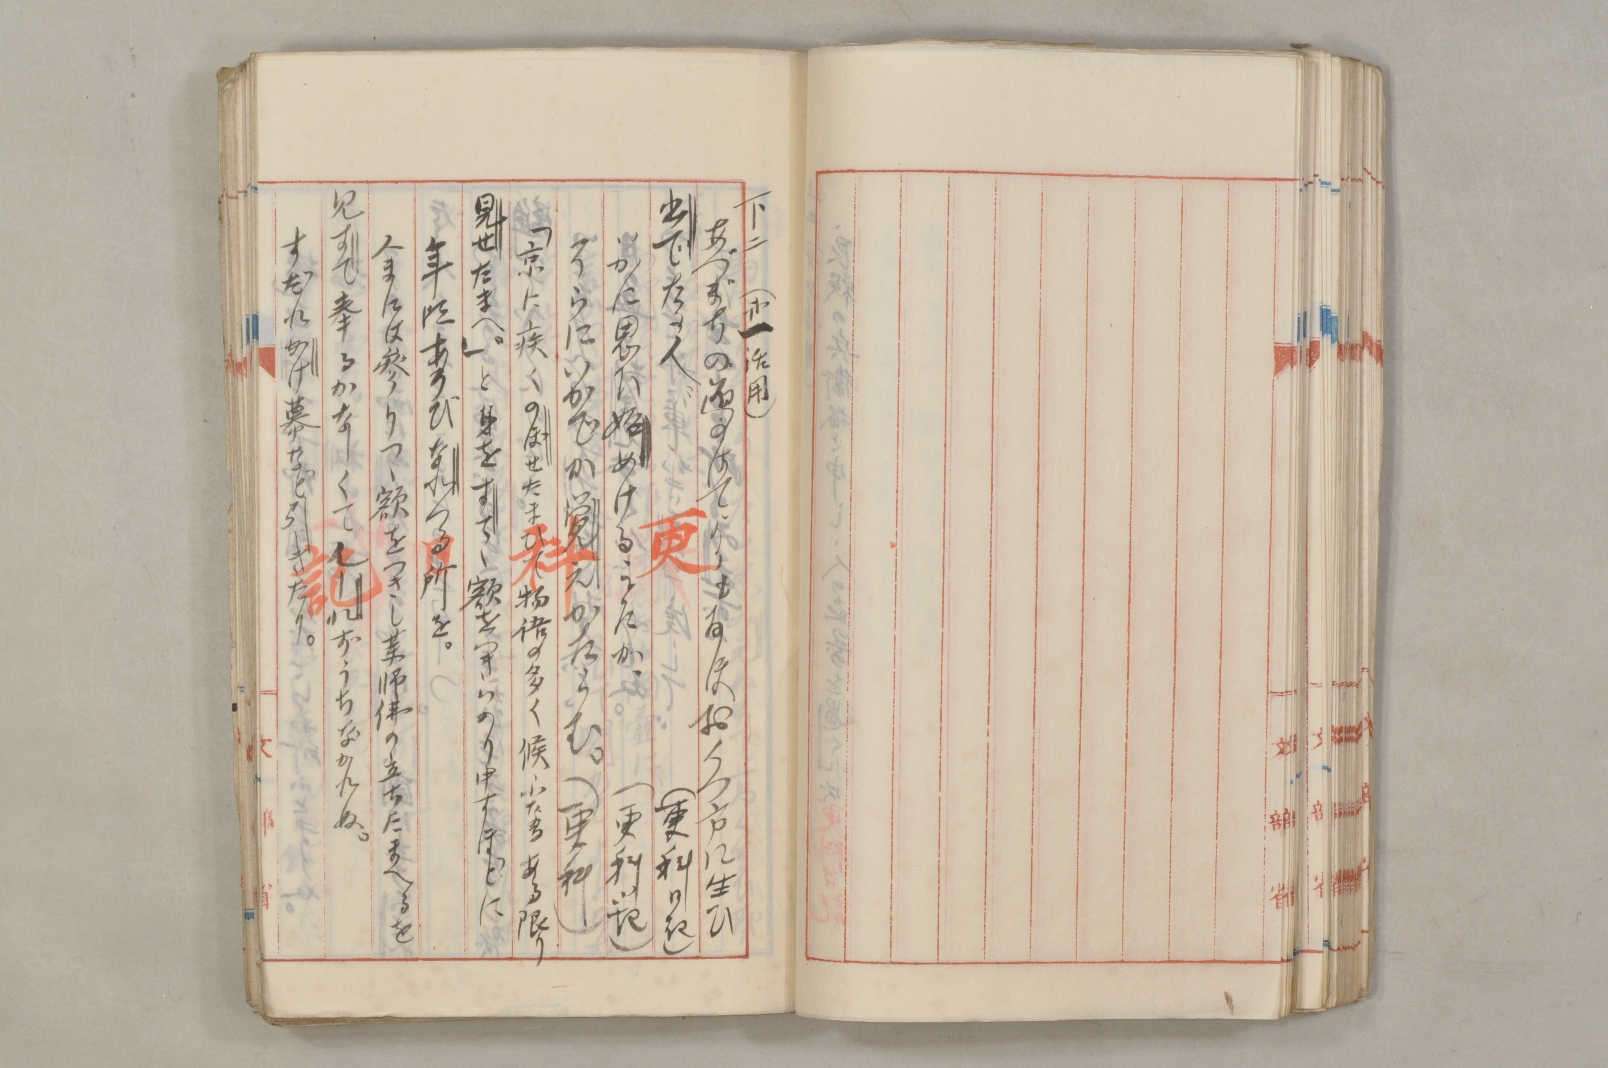 下二（第一活用）
あづまぢの道のはてよりもなほおくつ方に生ひ
出でたる人、（更科日記）
いかに思ひ始めけることにか、（更科日記）
そらにいかでか覚えかたらむ。（更科〃）
「京に疾くのぼせたまひて物語の多く候ふなるある限り
見せたまへ。」と身をすてゝ額をつきいのり申すほどに
年頃あそびなれつる所を。
人まには参りつゝ額をつきし薬師佛の立ちたまへるを
見すて奉るかなしくて人しれずうちなかれぬ。
すだれかけ幕など引きたり。
更科日記
文部省